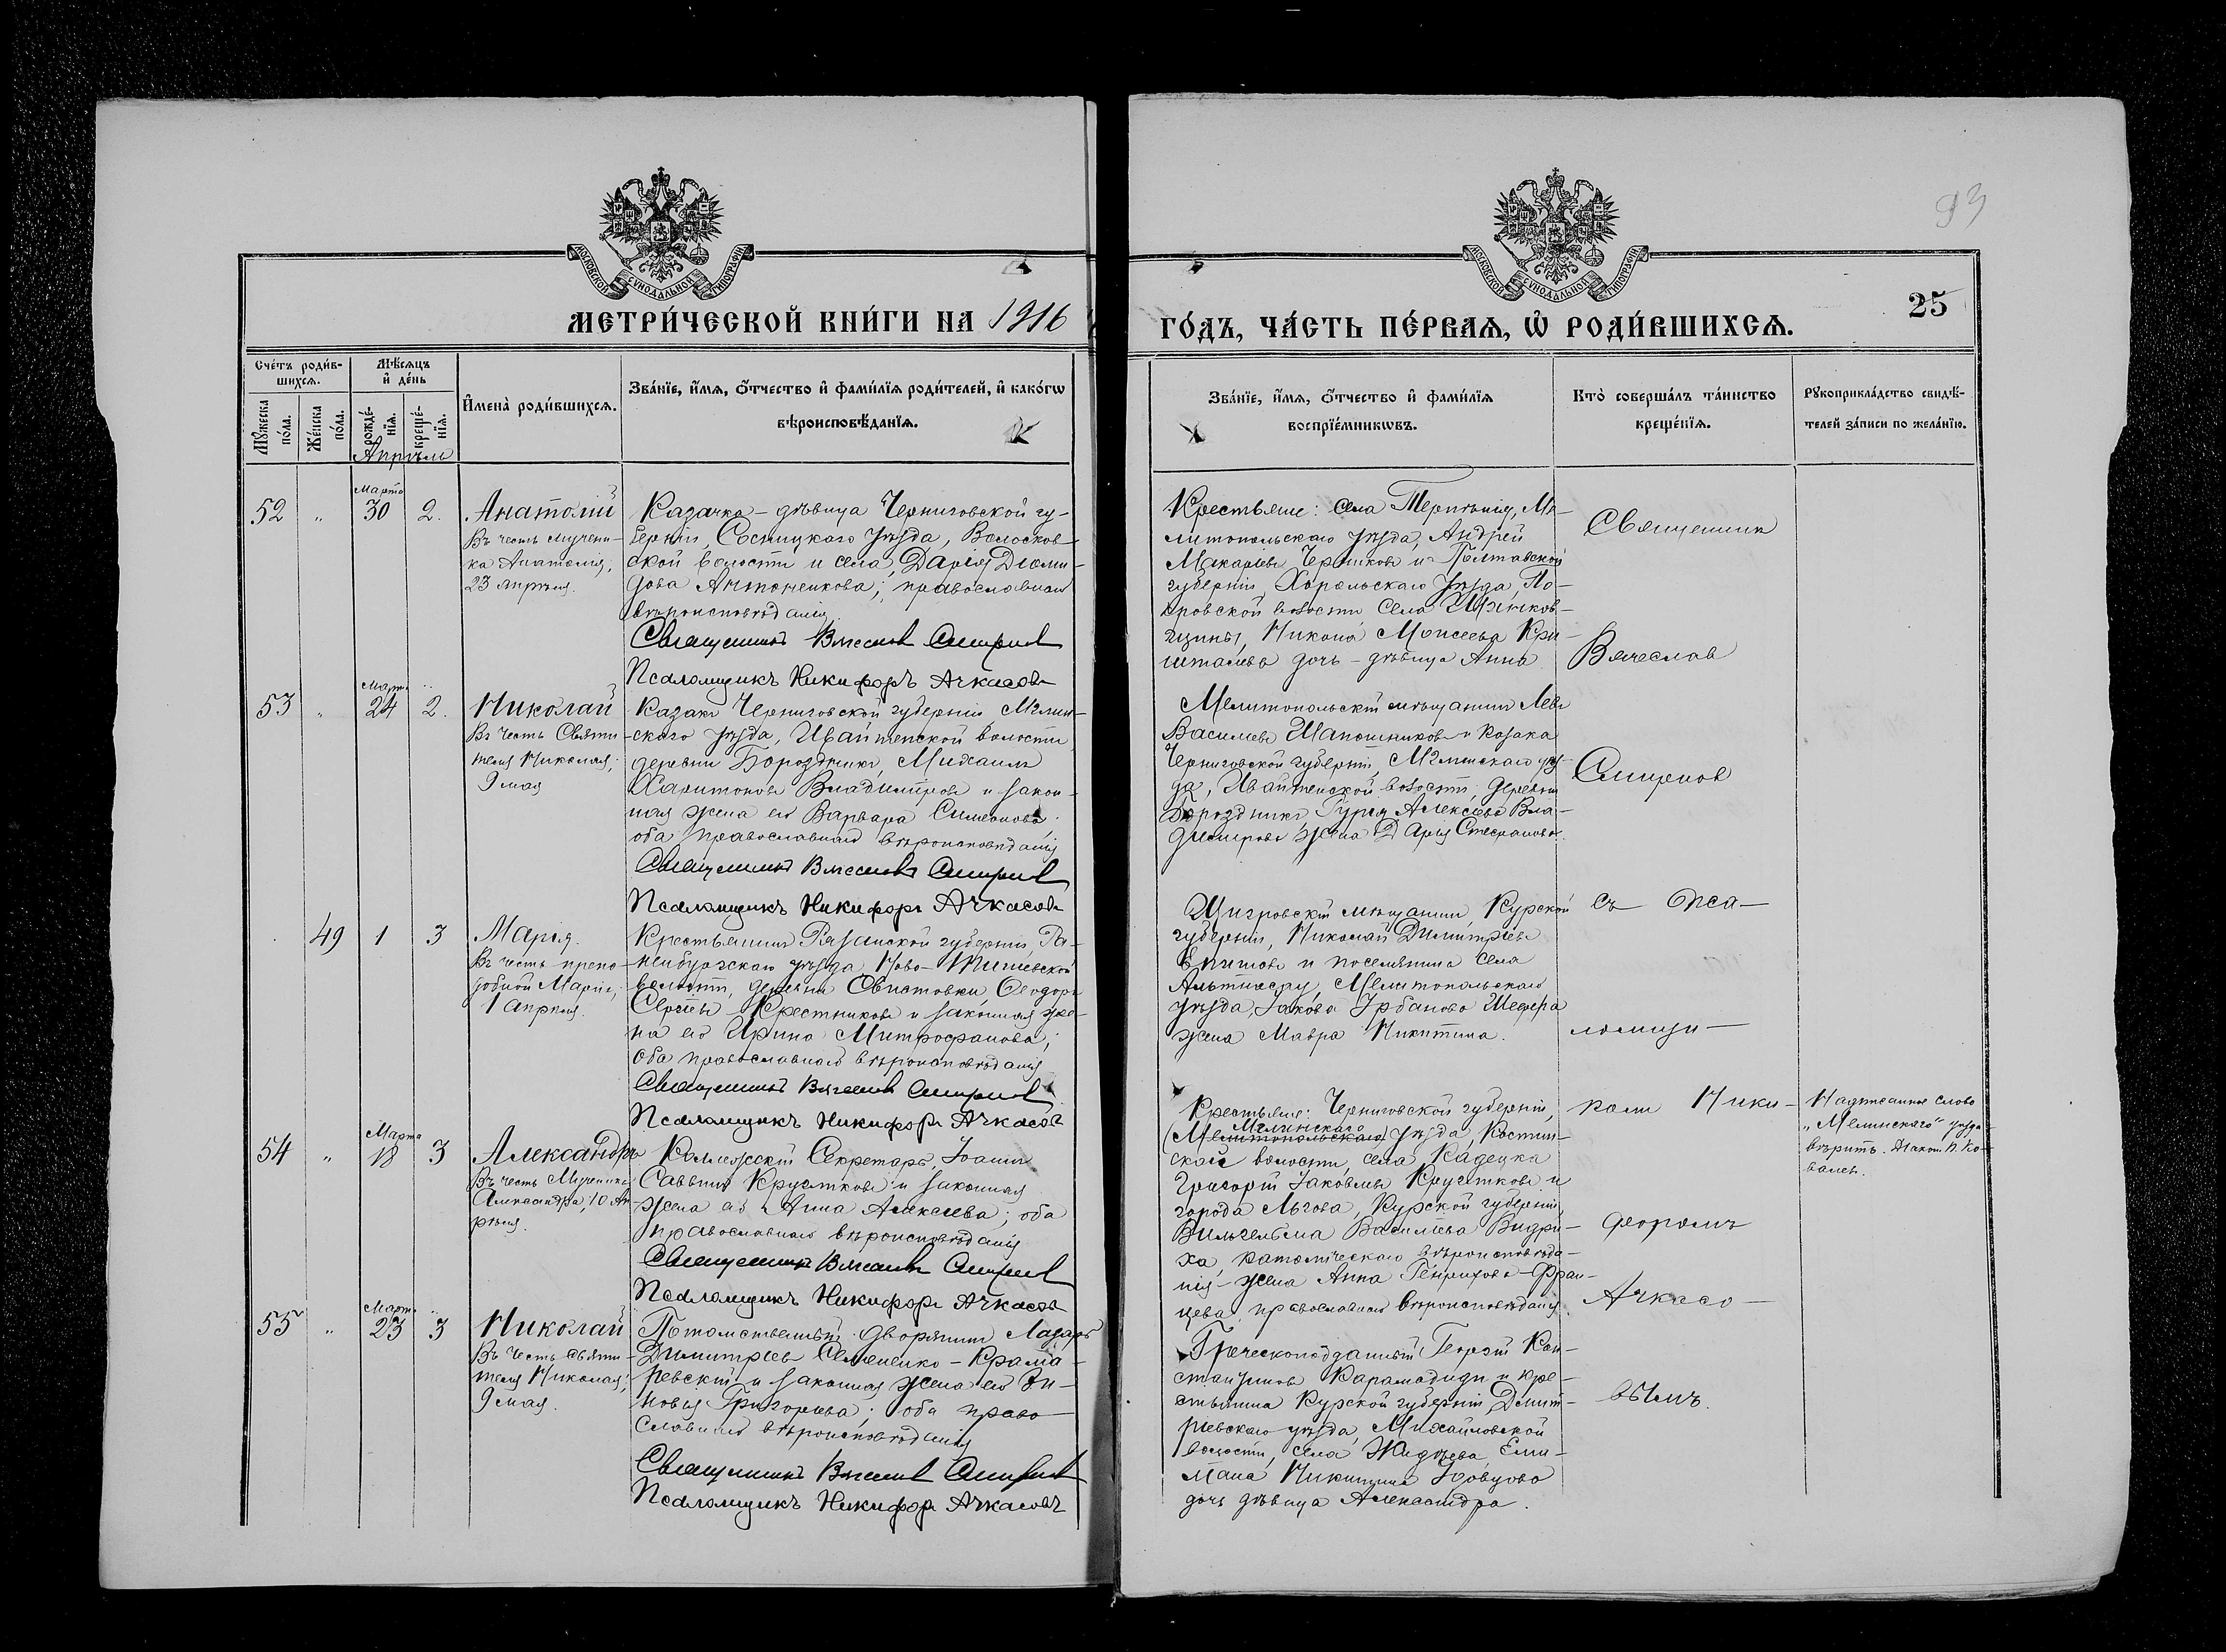 93
МОСКОВСКОЙ СѴНОДАЛЬНОЙ ТИПОГРАФІИ
МОСКОВСКОЙ СѴНОДАЛЬНОЙ ТИПОГРАФІИ
МЕТРИ́ЧЕСКОЙ КНИ́ГИ НА 1916
ГО́ДЪ, ЧА́СТЬ ПЕ́РВАЯ, Ѡ РОДИ́ВШИХСЯ.
25
Сче́тъ роди́в-
шихся.
Мѣ́сяцъ
и де́нь
Мꙋ́жеска
по́ла.
Же́нска
по́ла.
рожде́-
нїя.
креще́-
нїя.
Апрѣль
И҆мена̀ роди́вшихся.
Зва́нїе, и҆́мя, ѻ҆́тчество и҆ фами́лїя роди́телей, и҆ како́гѡ
вѣроисповѣ́данїя.
Зва́нїе, и҆́мя, ѻ҆́тчество и҆ фами́лїя
воспрїе́мникѡвъ.
Кто̀ соверша́лъ та́инство
креще́нїя.
Рꙋкоприкла́дство свидѣ́-
телей за́писи по жела́нїю.
52 " Марта 30 2.
Анатолій
Въ честь мучени-
ка Анатолія,
23 апрѣля.
Казачка - дѣвица Черниговской гу-
берніи, Сосницкаго уѣзда, Волосков-
ской волости и села, Дарія Діоми-
дова Антоненкова; православнаго
вѣроисповѣданія
Священникъ Вячеславъ Смирновъ
Псаломщикъ Никифоръ Ачкасовъ
Крестьяне: села Терпѣнія, Ме-
литопольскаго уѣзда, Андрей
Макаріевъ Черниковъ и Полтавской
губерніи, Хорольскаго уѣзда, По-
кровской волости села
щины, Никона Моисеева Кри-
шталева дочь - дѣвица Анна
53 " Марта 24 2.
Николай
Въ честь Святи-
теля Николая;
9 мая
Казакъ Черниговской губерніи, Мглин-
скаго уѣзда, Ивайтенской волости,
деревни Бороздники, Михаилъ
Харитоновъ Владиміровъ и закон-
ная жена его Варвара Симеонова
оба православнаго вѣроисповѣданія
Священникъ Вячеславъ Смирновъ
Псаломщикъ Никифоръ Ачкасовъ
Мелитопольскій мѣщанинъ Левъ
Васильевъ Шапошниковъ и казака
Черниговской губерніи, Мглинскаго уѣз-
да, Ивайтенской волости, деревни
Бороздники, Гурія Алексѣева Вла-
димирова жена Дарія Стефанова.
49 1 3
Марія.
Въ честь препо-
добной Маріи;
1 апрѣля.
Крестьянинъ Рязанской губерніи, Ра-
ненбургскаго уѣзда, Ново-
волости, деревни Свистовки, Ѳеодоръ
Сергіевъ Крестниковъ и законная же-
на его Ирина Митрофанова;
оба православнаго вѣроисповѣданія
Священникъ Вячеславъ Смирновъ
Псаломщикъ Никифоръ Ачкасовъ
Щигровскій мѣщанинъ, Курской
губерніи, Николай Димитріевъ
Епишовъ и поселянина села
Альтнасау, Мелитопольскаго
уѣзда, Іакова Урбанова Шефера
жена Мавра Никитина.
54 " Марта 18 3
Александръ
Въ честь Мученика
Александра, 10 Ап-
рѣля.
Коллежскій Секретарь, Іоаннъ
Саввинъ Кругликовъ и законная
жена его Анна Алексѣева; оба
православнаго вѣроисповѣданія
Священникъ Вячеславъ Смирновъ
Псаломщикъ Никифоръ Ачкасовъ
Крестьяне: Черниговской губерніи,
Мглинскаго
(Мелитопольскаго) уѣзда, Костин-
ской волости, села
Григорій Іаковлевъ Кругликовъ и
города Льгова, Курской губерніи,
Вильгельма Васильева Видри-
ха, католическаго вѣроисповѣда-
нія - жена Анна Генрихова-Фран-
цева, православнаго вѣроисповѣданія.
Надписанное слово
„Мглинскаго" уѣзда
вѣрить. Діаконъ П. Ко-
валевъ.
55 " Марта 23 3
Николай
Въ честь Святи-
теля Николая;
9 мая.
Потомственный дворянинъ Лазарь
Димитріевъ Семененко-Крама-
ревскій и законная жена его Зи-
новія Григорьева; оба право-
славнаго вѣроисповѣданія
Священникъ Вячеславъ Смирновъ
Псаломщикъ Никифоръ Ачкасовъ
Греческоподданный Георгій Кон-
стантиновъ Карамадиди и кре-
стьянина Курской губерніи, Дмит-
ріевскаго уѣзда, Михайловской
волости, села Жидѣева, Еми-
ліана Никитина
дочь дѣвица Александра.
Священник
Вячеслав
Смирнов
съ Пса-
ломщи-
комъ Ники-
форомъ
Ачкасо-
вымъ.